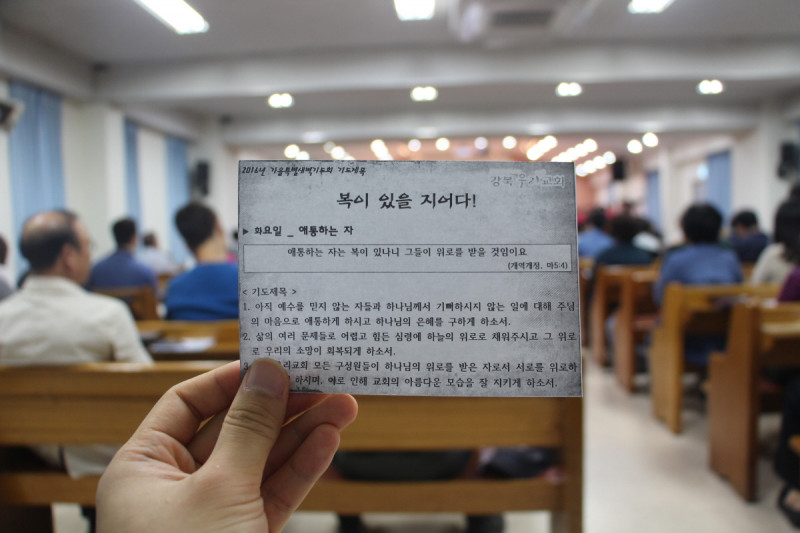 2016년 가을특별새벽기도회 기도제목
강북우리교회
복이 있을 지어다!
▶ 화요일 _ 애통하는 자
애통하는 자는 복이 있나니 그들이 위로를 받을 것임이요
(개역개정, 마5:4)
< 기도제목 >
1. 아직 예수를 믿지 않는 자들과 하나님께서 기뻐하시지 않는 일에 대해 주님
의 마음으로 애통하게 하시고 하나님의 은혜를 구하게 하소서.
2. 삶의 여러 문제들로 어렵고 힘든 심령에 하늘의 위로로 채워주시고 그 위로
로 우리의 소망이 회복되게 하소서.
리교회 모든 구성원들이 하나님의 위로를 받은 자로서 서로를 위로하
하시며, 이로 인해 교회의 아름다운 모습을 잘 지키게 하소서.